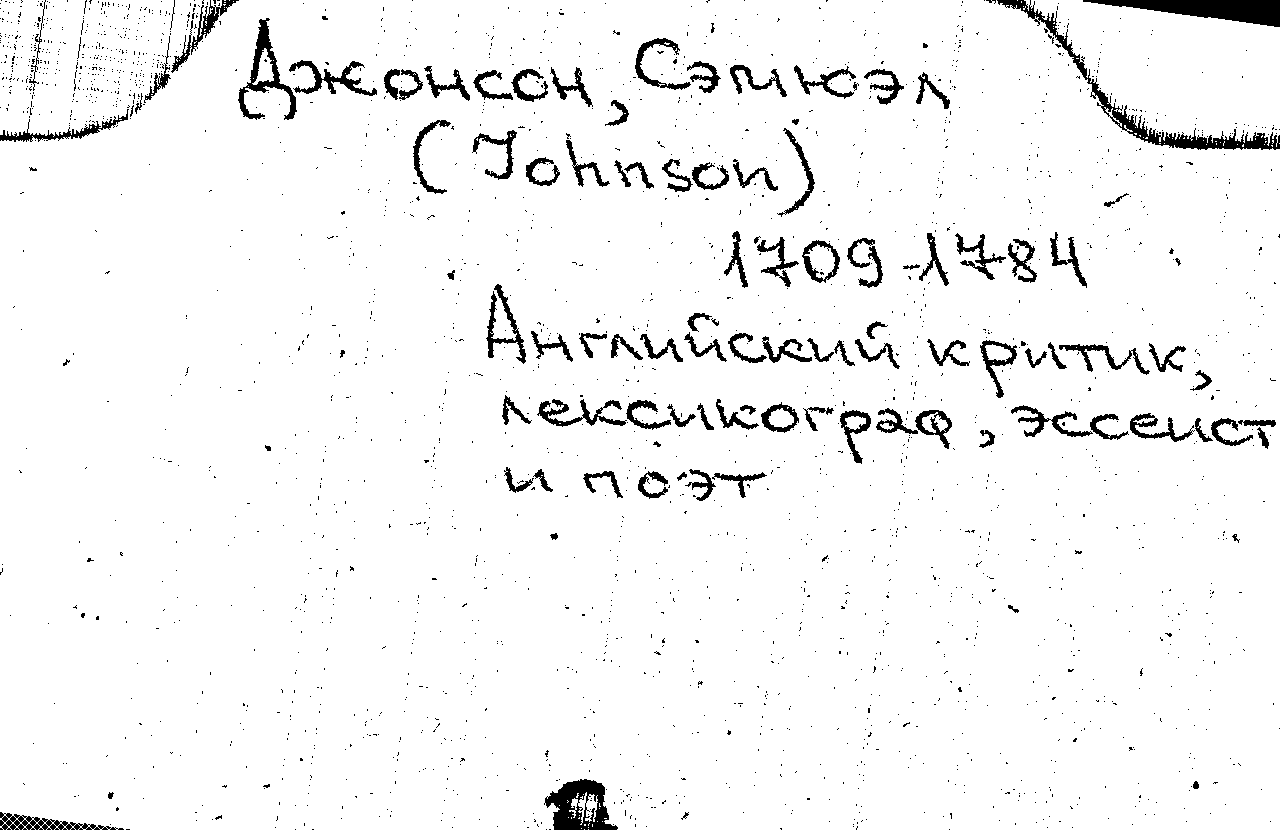 Джонсон, Сэмюэл
(Johnson)
1709-1784
Английский критик,
лексикограф, эссеист
и поэт